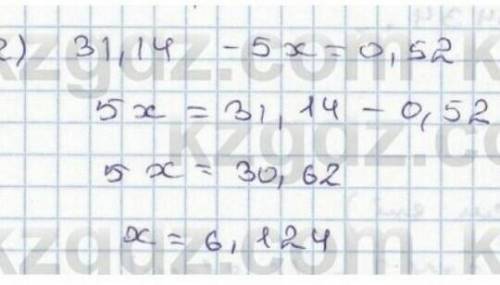 2) 31,14 - 5x = 0,52
5x = 31,14 - 0,52
5x = 30,62
x = 6,124
kzgdz.com